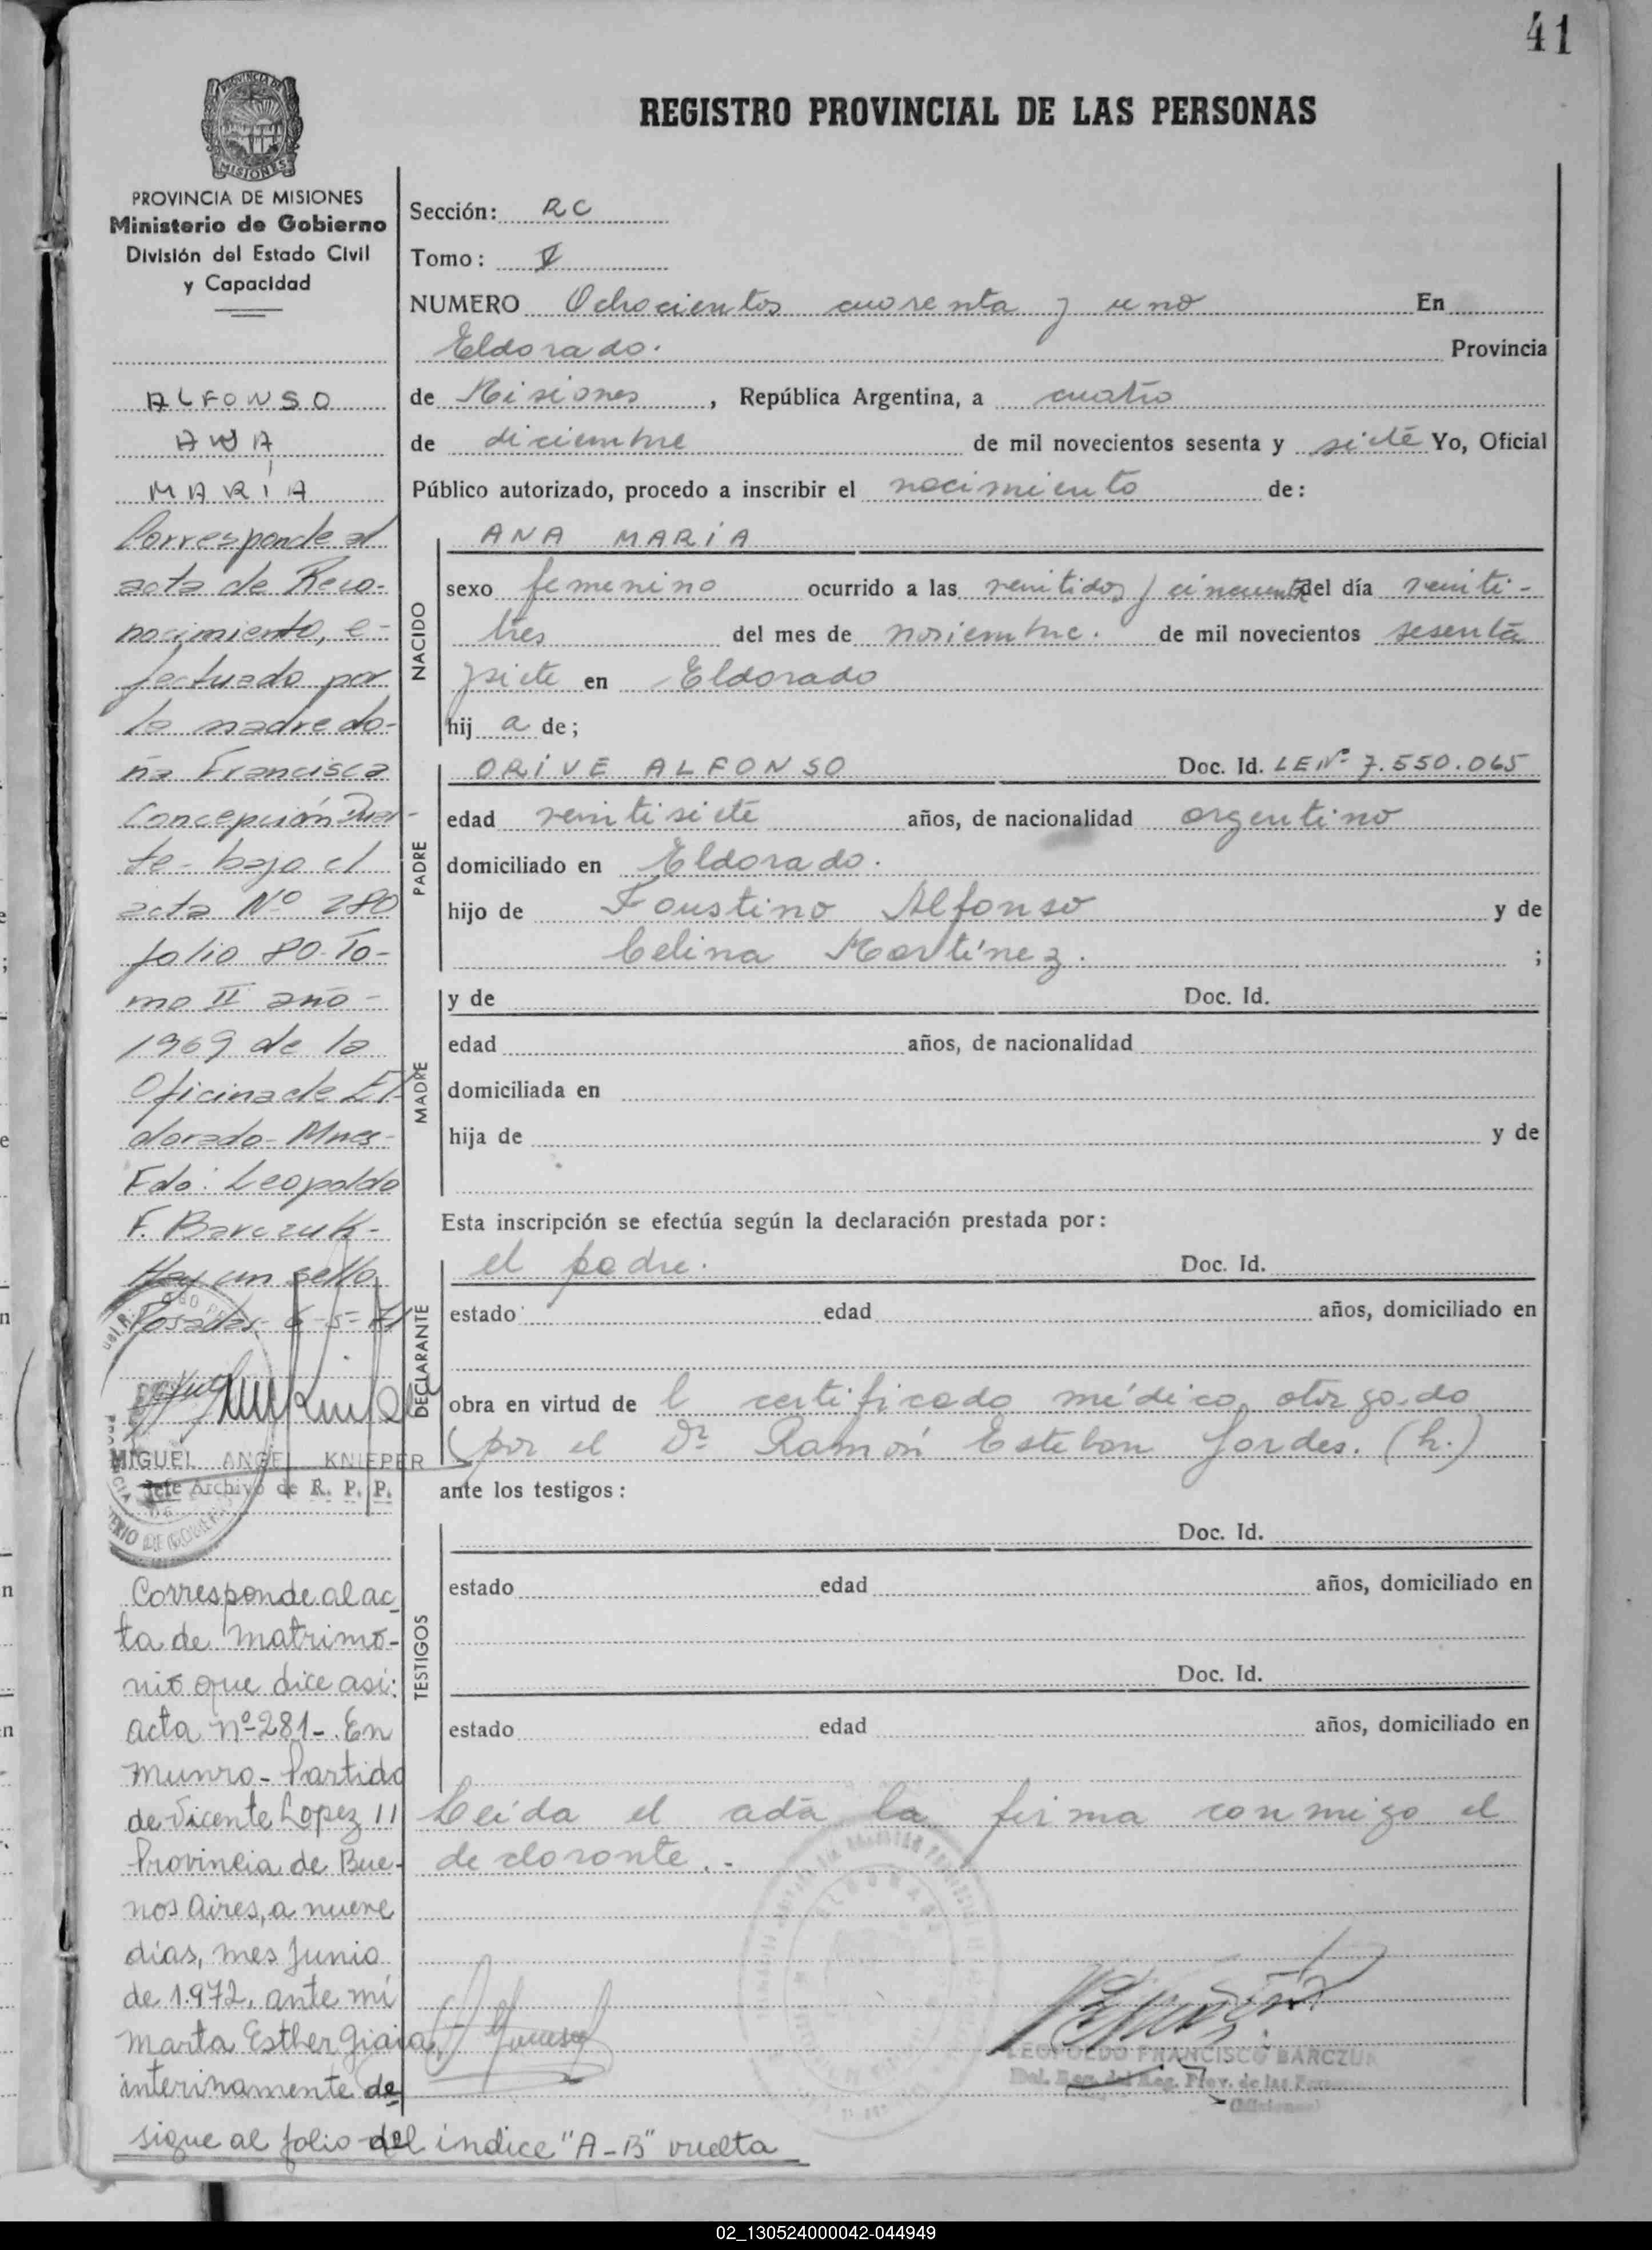 41
REGISTRO PROVINCIAL DE LAS PERSONAS
PROVINCIA DE MISIONES
Ministerio de Gobierno
División del Estado Civil
y Capacidad
ALFONSO
ANA
MARÍA
Corresponde al
acta de Reco-
nocimiento, e-
fectuado por
la madre do-
ña Francisca
Concepción Duar-
te- bajo el
acta Nº 280
folio 80-To-
mo II año-
1969 de la
Oficina de El-
dorado- Mnes-
Fdo: Leopoldo
F. Barczuk-
Hay un sello
Posadas 6-5-71
MIGUEL ANGEL KNIEPER
Jefe Archivo de R. P. P.
Corresponde al ac_
ta de matrimo-
nio que dice así:
acta nº 281-. En
Munro- Partido
de Vicente Lopez 11
Provincia de Bue-
nos Aires, a nueve
días, mes Junio
de 1.972, ante mí
Marta Esther Giaia,
interinamente de
sigue al folio del índice "A-B" vuelta
Sección: RC
Tomo:
NUMERO Ochocientos cuarenta y uno En
Eldorado. Provincia
de Misiones, República Argentina, a cuatro
de diciembre de mil novecientos sesenta y siete Yo, Oficial
Público autorizado, procedo a inscribir el nacimiento de:
NACIDO
ANA MARÍA
sexo femenino ocurrido a las veintidos y cincuenta del día veinti-
tres del mes de noviembre. de mil novecientos sesenta
y siete en Eldorado
hij a de;
PADRE
ORIVE ALFONSO Doc. Id. LE Nº 7.550.065
edad veintisiete años, de nacionalidad argentino
domiciliado en Eldorado.
hijo de Faustino Alfonso y de
Celina Martínez. ;
MADRE
y de Doc. Id.
edad años, de nacionalidad
domiciliada en
hija de y de
Esta inscripción se efectúa según la declaración prestada por:
DECLARANTE
el padre. Doc. Id.
estado edad años, domiciliado en
obra en virtud de l certificado médico otorgado
(por el Dr. Ramón Esteban Jordes. (h.)
ante los testigos:
TESTIGOS
Doc. Id.
estado edad años, domiciliado en
Doc. Id.
estado edad años, domiciliado en
Leída el acta la firma conmigo el
declarante.-
LEOPOLDO FRANCISCO BARCZUK
(Misiones)
02_130524000042-044949